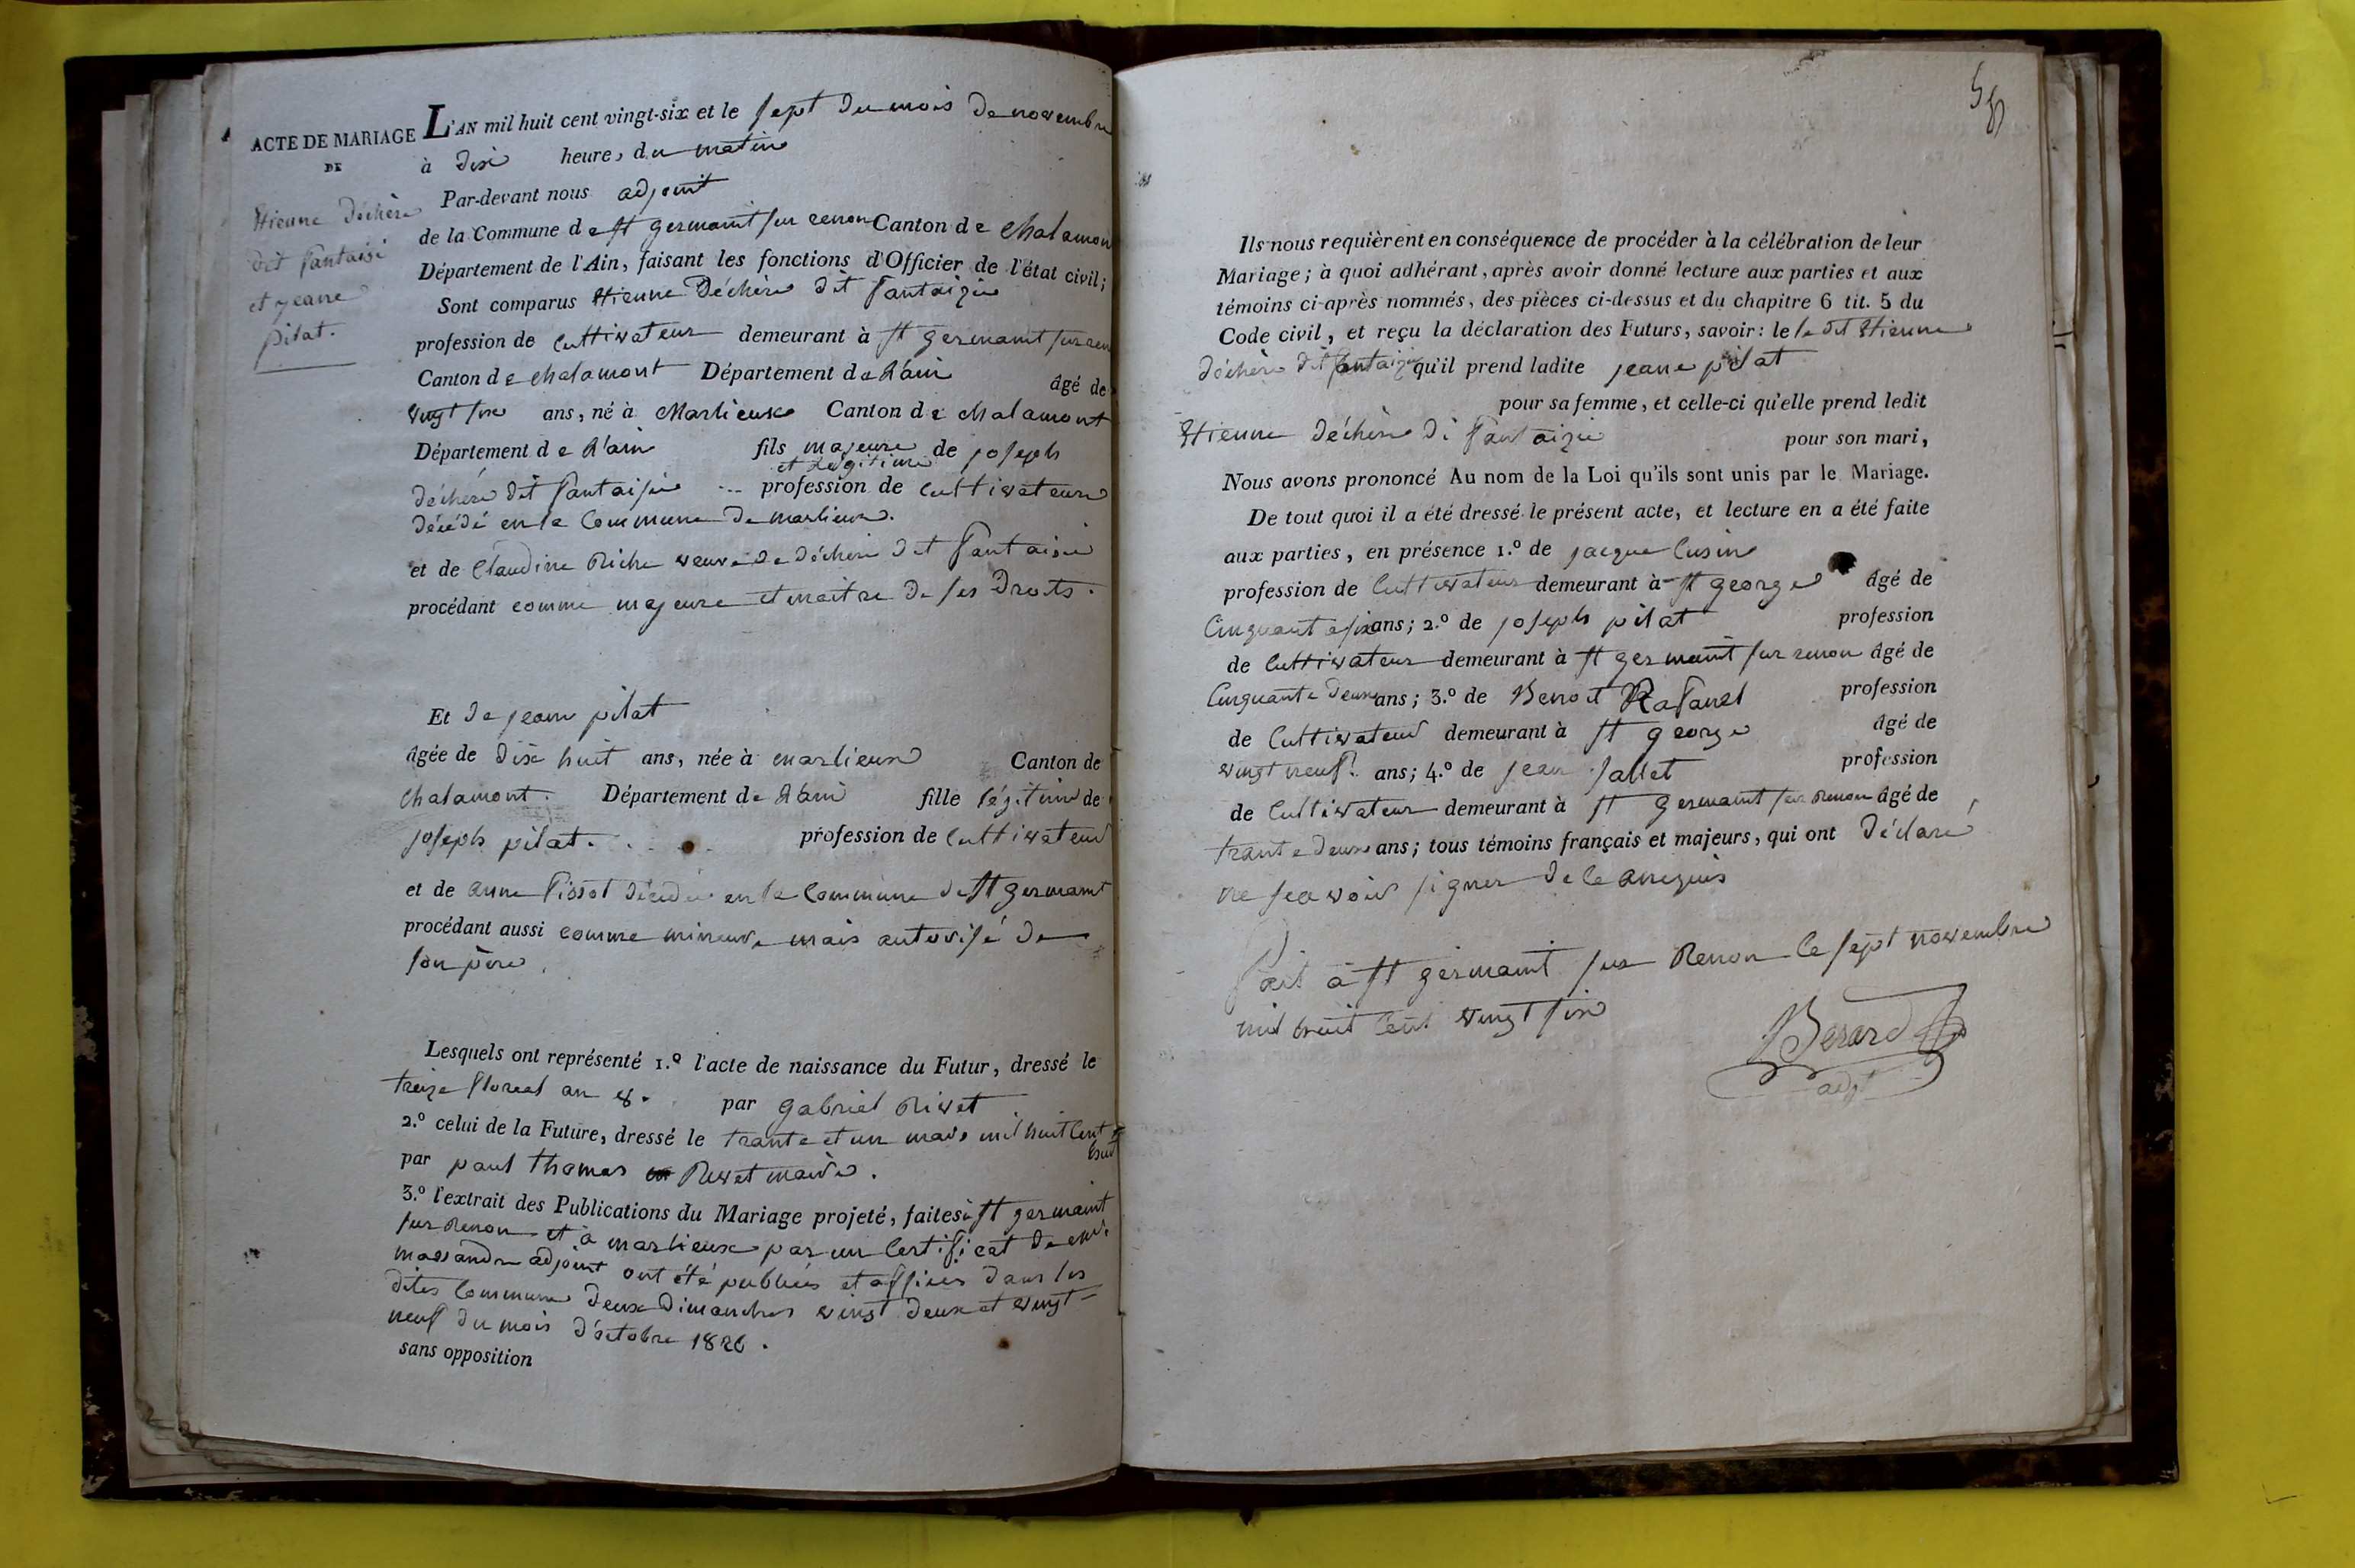 ACTE DE MARIAGE
DE
Etienne déchère
dit fantaisi
et jeane
pilat.
L'AN mil huit cent vingt-six et le sept du mois de novembre
à dix heures du matin
Par-devant nous adjoint
de la Commune de st germaint sur renon Canton de Chalamon
Département de l'Ain, faisant les fonctions d'Officier de l'état civil;
Sont comparus Etienne Déchère dit fantaizie
profession de Cultivateur demeurant à st germaint sur ren
Canton de chalamont Département de l'ain âgé de
vingt six ans, né à Marlieux Canton de chalamont
Département de l'ain fils majeure de joseph
et légitime
déchère dit fantaisie profession de Cultivateure
décédé en la Commune de marlieux.
et de Claudine Riche veuve de déchère dit fantaisie
procédant comme majeure et maitre de ses Droits.
Et de jeane pilat
âgée de dix huit ans, née à marlieux Canton de
Chalamont. Département de l'ain fille légitime de
joseph pilat. profession de Cultivateur
et de anne décédée en la Commune de st germaint
procédant aussi comme mineure mais autorisé de
son père.
Lesquels ont représenté 1.º l'acte de naissance du Futur, dressé le
treize floreal an 8. par gabriel Rivet
2.º celui de la Future, dressé le trante et un mars mil huit Cent
huit
par paul thomas Rivet maire.
3.º l'extrait des Publications du Mariage projeté, faites à st germaint
sur Renon et à marlieux par un Certificat de
adjoint ont été publiées et affiées dans les
dites Commune deux Dimanches vingt deux et vingt-
neuf du mois d'octobre 1826.
sans opposition
58
Ils nous requièrent en conséquence de procéder à la célébration de leur
Mariage; à quoi adhérant, après avoir donné lecture aux parties et aux
témoins ci-après nommés, des pièces ci-dessus et du chapitre 6 tit. 5 du
Code civil, et reçu la déclaration des Futurs, savoir: le le dit Etienne
déchère dit fantaizie qu'il prend ladite jeane pilat
pour sa femme, et celle-ci qu'elle prend ledit
Etienne déchère di fantaizie pour son mari,
Nous avons prononcé Au nom de la Loi qu'ils sont unis par le Mariage.
De tout quoi il a été dressé le présent acte, et lecture en a été faite
aux parties, en présence 1.º de jacque Cusin
profession de Cultivateur demeurant à st george âgé de
Cinquante six ans; 2.º de joseph pilat profession
de Cultivateur demeurant à st germaint sur renon âgé de
Cinquante deux ans; 3.º de Benoit Rafanel profession
de Cultivateur demeurant à st george âgé de
vingt neuf ans; 4.º de jean profession
de Cultivateur demeurant à st germaint sur Renon âgé de
trante deux ans; tous témoins français et majeurs, qui ont déclaré
ne seavoir signer de ce anrequis
fait à st germaint sur Renon le sept novembre
mil huit Cent vingt six
Berard
adjt